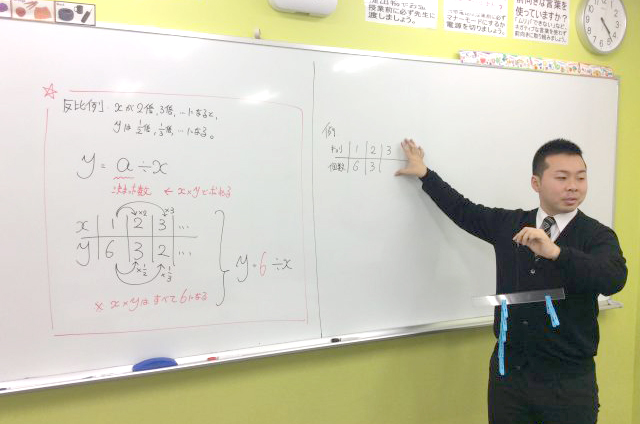 授業前に必ず先生に
渡しましょう。
マナーモードにするか
電源を切りましょう。
前向きな言葉を
使っていますか?
反比例: xが2倍, 3倍, …になると,
yは 1/2倍, 1/3倍, …になる。
y = a ÷ x
決まった数 ← x×yで求める
x | 1 | 2 | 3 | …
y | 6 | 3 | 2 | …
×2 ×3
×1/2 ×1/3
y = 6 ÷ x
※ x×yはすべて6になる
例
| 1 | 2 | 3
個数 | 6 | 3 |